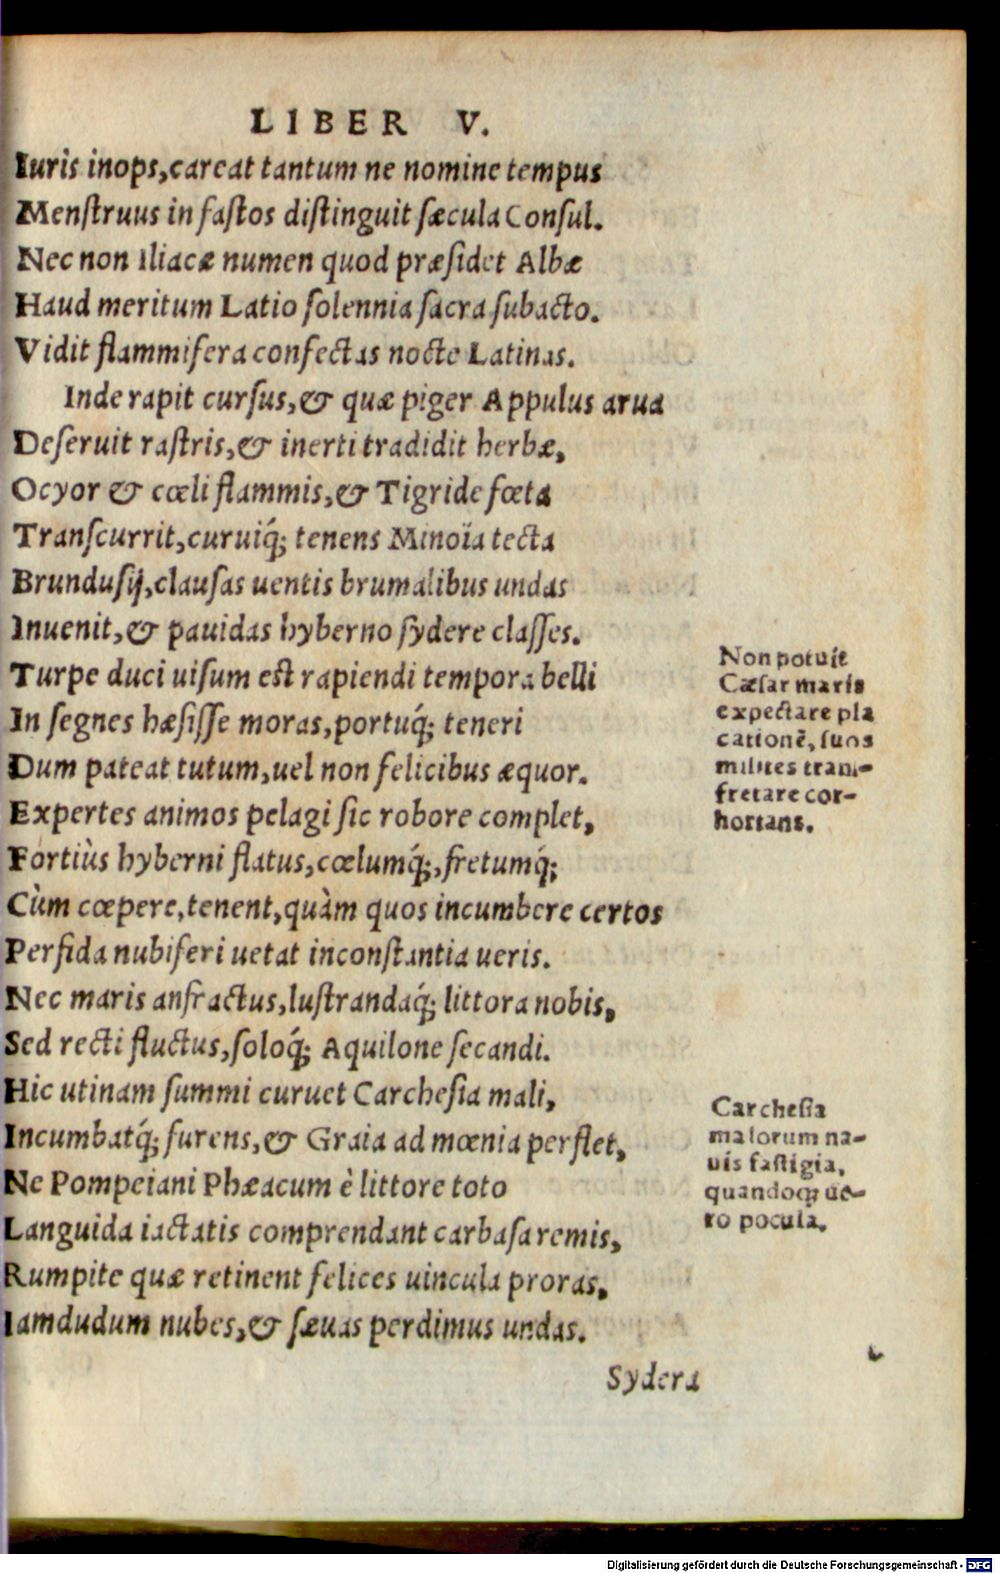 LIBER V.
Iuris inops, careat tantum ne nomine tempus
Menstruus in fastos distinguit sæcula Consul.
Nec non Iliacæ numen quod præsidet Albæ
Haud meritum Latio solennia sacra subacto.
Vidit flammifera confectas nocte Latinas.
Inde rapit cursus, & quæ piger Appulus arua
Deseruit rastris, & inerti tradidit herbæ,
Ocyor & cœli flammis, & Tigride fœta
Transcurrit, curuiq́; tenens Minoïa tecta
Brundusij, clausas uentis brumalibus undas
Inuenit, & pauidas hyberno sydere classes.
Turpe duci uisum est rapiendi tempora belli
In segnes hæsisse moras, portuq́; teneri
Dum pateat tutum, uel non felicibus æquor.
Expertes animos pelagi sic robore complet,
Fortiùs hyberni flatus, cœlumq́;, fretumq́;
Cùm cœpere, tenent, quàm quos incumbere certos
Perfida nubiferi uetat inconstantia ueris.
Nec maris anfractus, lustrandaq́; littora nobis,
Sed recti fluctus, soloq́; Aquilone secandi.
Hic utinam summi curuet Carchesia mali,
Incumbatq́; furens, & Graia ad mœnia perflet,
Ne Pompeiani Phæacum è littore toto
Languida iactatis comprendant carbasa remis,
Rumpite quæ retinent felices uincula proras,
Iamdudum nubes, & sæuas perdimus undas.
Sydera
Non potuit
Cæsar maris
expectare pla
cationẽ, suos
milites trans-
fretare cor-
hortans.
Carchesia
malorum na-
uis fastigia,
quandoq; ue-
ro pocula.
Digitalisierung gefördert durch die Deutsche Forschungsgemeinschaft - DFG